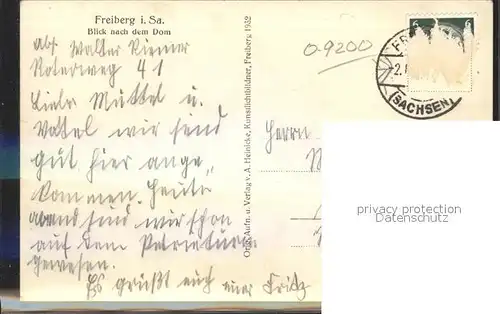 Freiberg i. Sa.
Blick nach dem Dom
abs. Walter Riemer
Roterweg 41
Liebe Muttel u.
Vattel wir sind
gut hier ange„
kommen. Heute
abend sind wir schon
auf dem Petrieturm
gewesen.
Es grüßt euch euer Fritz
Orig.-Aufn. u. Verlag v. A. Heinicke, Kunstlichtbildner, Freiberg 1932
0-9200
6
(SACHSEN)
Herrn
privacy protection
Datenschutz